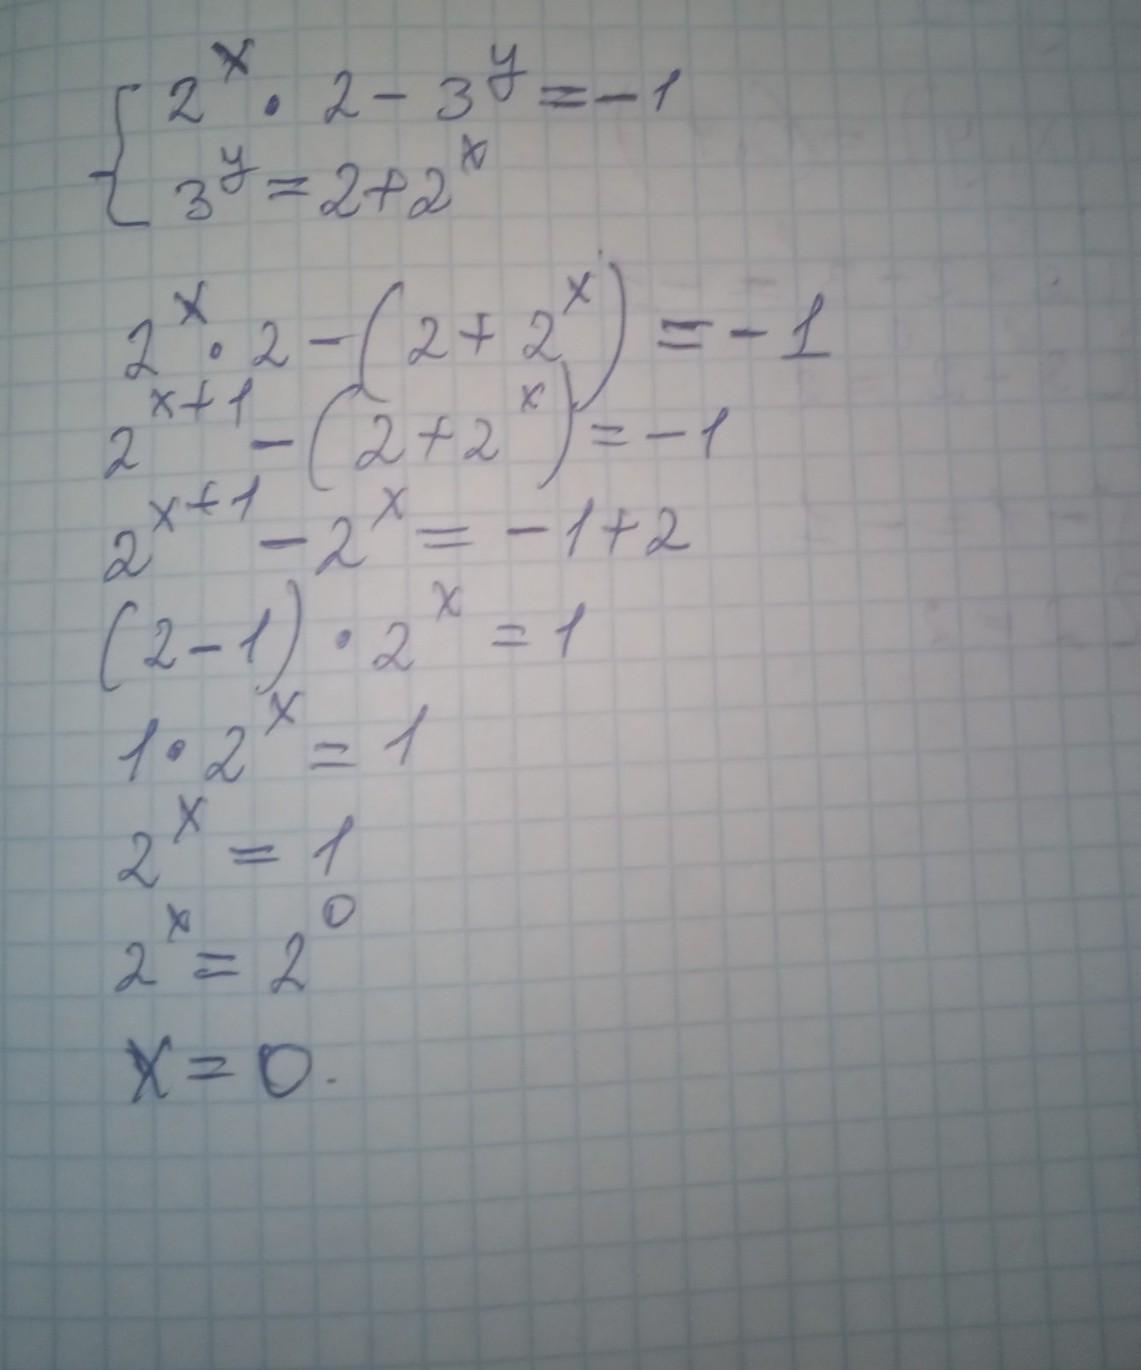 { 2^x · 2 - 3^y = -1
3^y = 2 + 2^x
2^x · 2 - (2 + 2^x) = -1
2^(x+1) - (2 + 2^x) = -1
2^(x+1) - 2^x = -1 + 2
(2 - 1) · 2^x = 1
1 · 2^x = 1
2^x = 1
2^x = 2^0
x = 0.